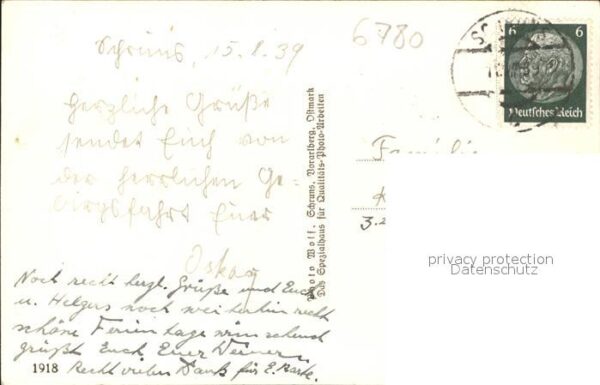 Schruns, 15.8.39
Herzliche Grüße
sendet Euch von
der herrlichen Ge-
birgsfahrt Euer
Oskar
Noch recht herzl. Grüße und Euch
u. Helgus noch weiterhin recht
schöne Ferientage wünschend
grüßt Euch Euer Werner.
Recht vielen Dank für E. Karte.
1918
Photo Wolf, Schruns, Vorarlberg, Ostmark
Das Spezialhaus für Qualitäts-Photo-Arbeiten
6780
6 6
Deutsches Reich
Familie
3.
privacy protection
Datenschutz